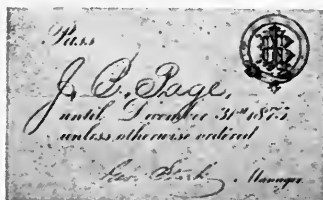 Pass
J. B. Page,
until December 31st 1875
unless otherwise ordered
Manager.